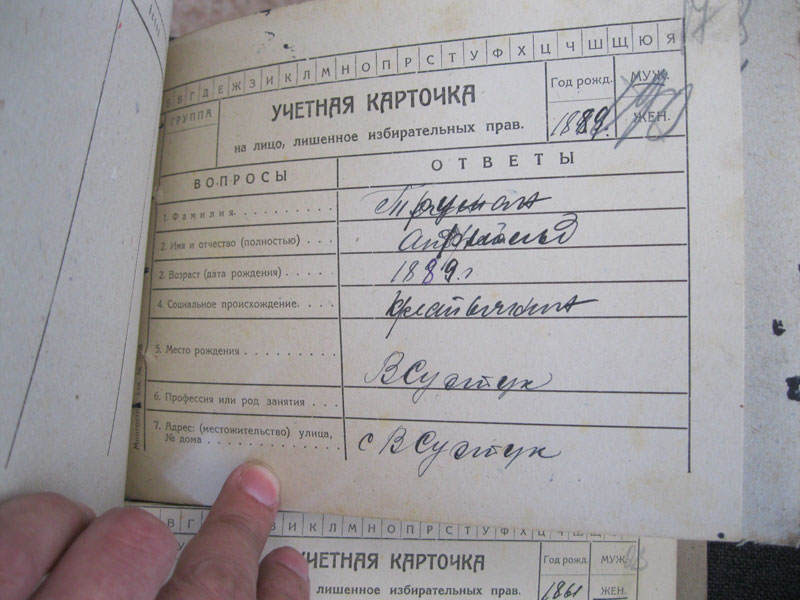 Б В Г Д Е Ж З И К Л М Н О П Р С Т У Ф Х Ц Ч Ш Щ Ю Я
ГРУППА
УЧЕТНАЯ КАРТОЧКА
на лицо, лишенное избирательных прав.
Год рожд.
1889.
МУЖ.
ЖЕН.
ВОПРОСЫ
ОТВЕТЫ
1. Фамилия
2. Имя и отчество (полностью)
3. Возраст (дата рождения)
1889.г
4. Социальное происхождение
Крестьянка
5. Место рождения
В Сустук
6. Профессия или род занятия
7. Адрес: (местожительство) улица,
№ дома
с В Сустук
В Г Д Е Ж З И К Л М Н О П Р С Т У Ф Х Ц Ч Ш Щ
УЧЕТНАЯ КАРТОЧКА
лишенное избирательных прав.
Год рожд.
1861
МУЖ.
ЖЕН.